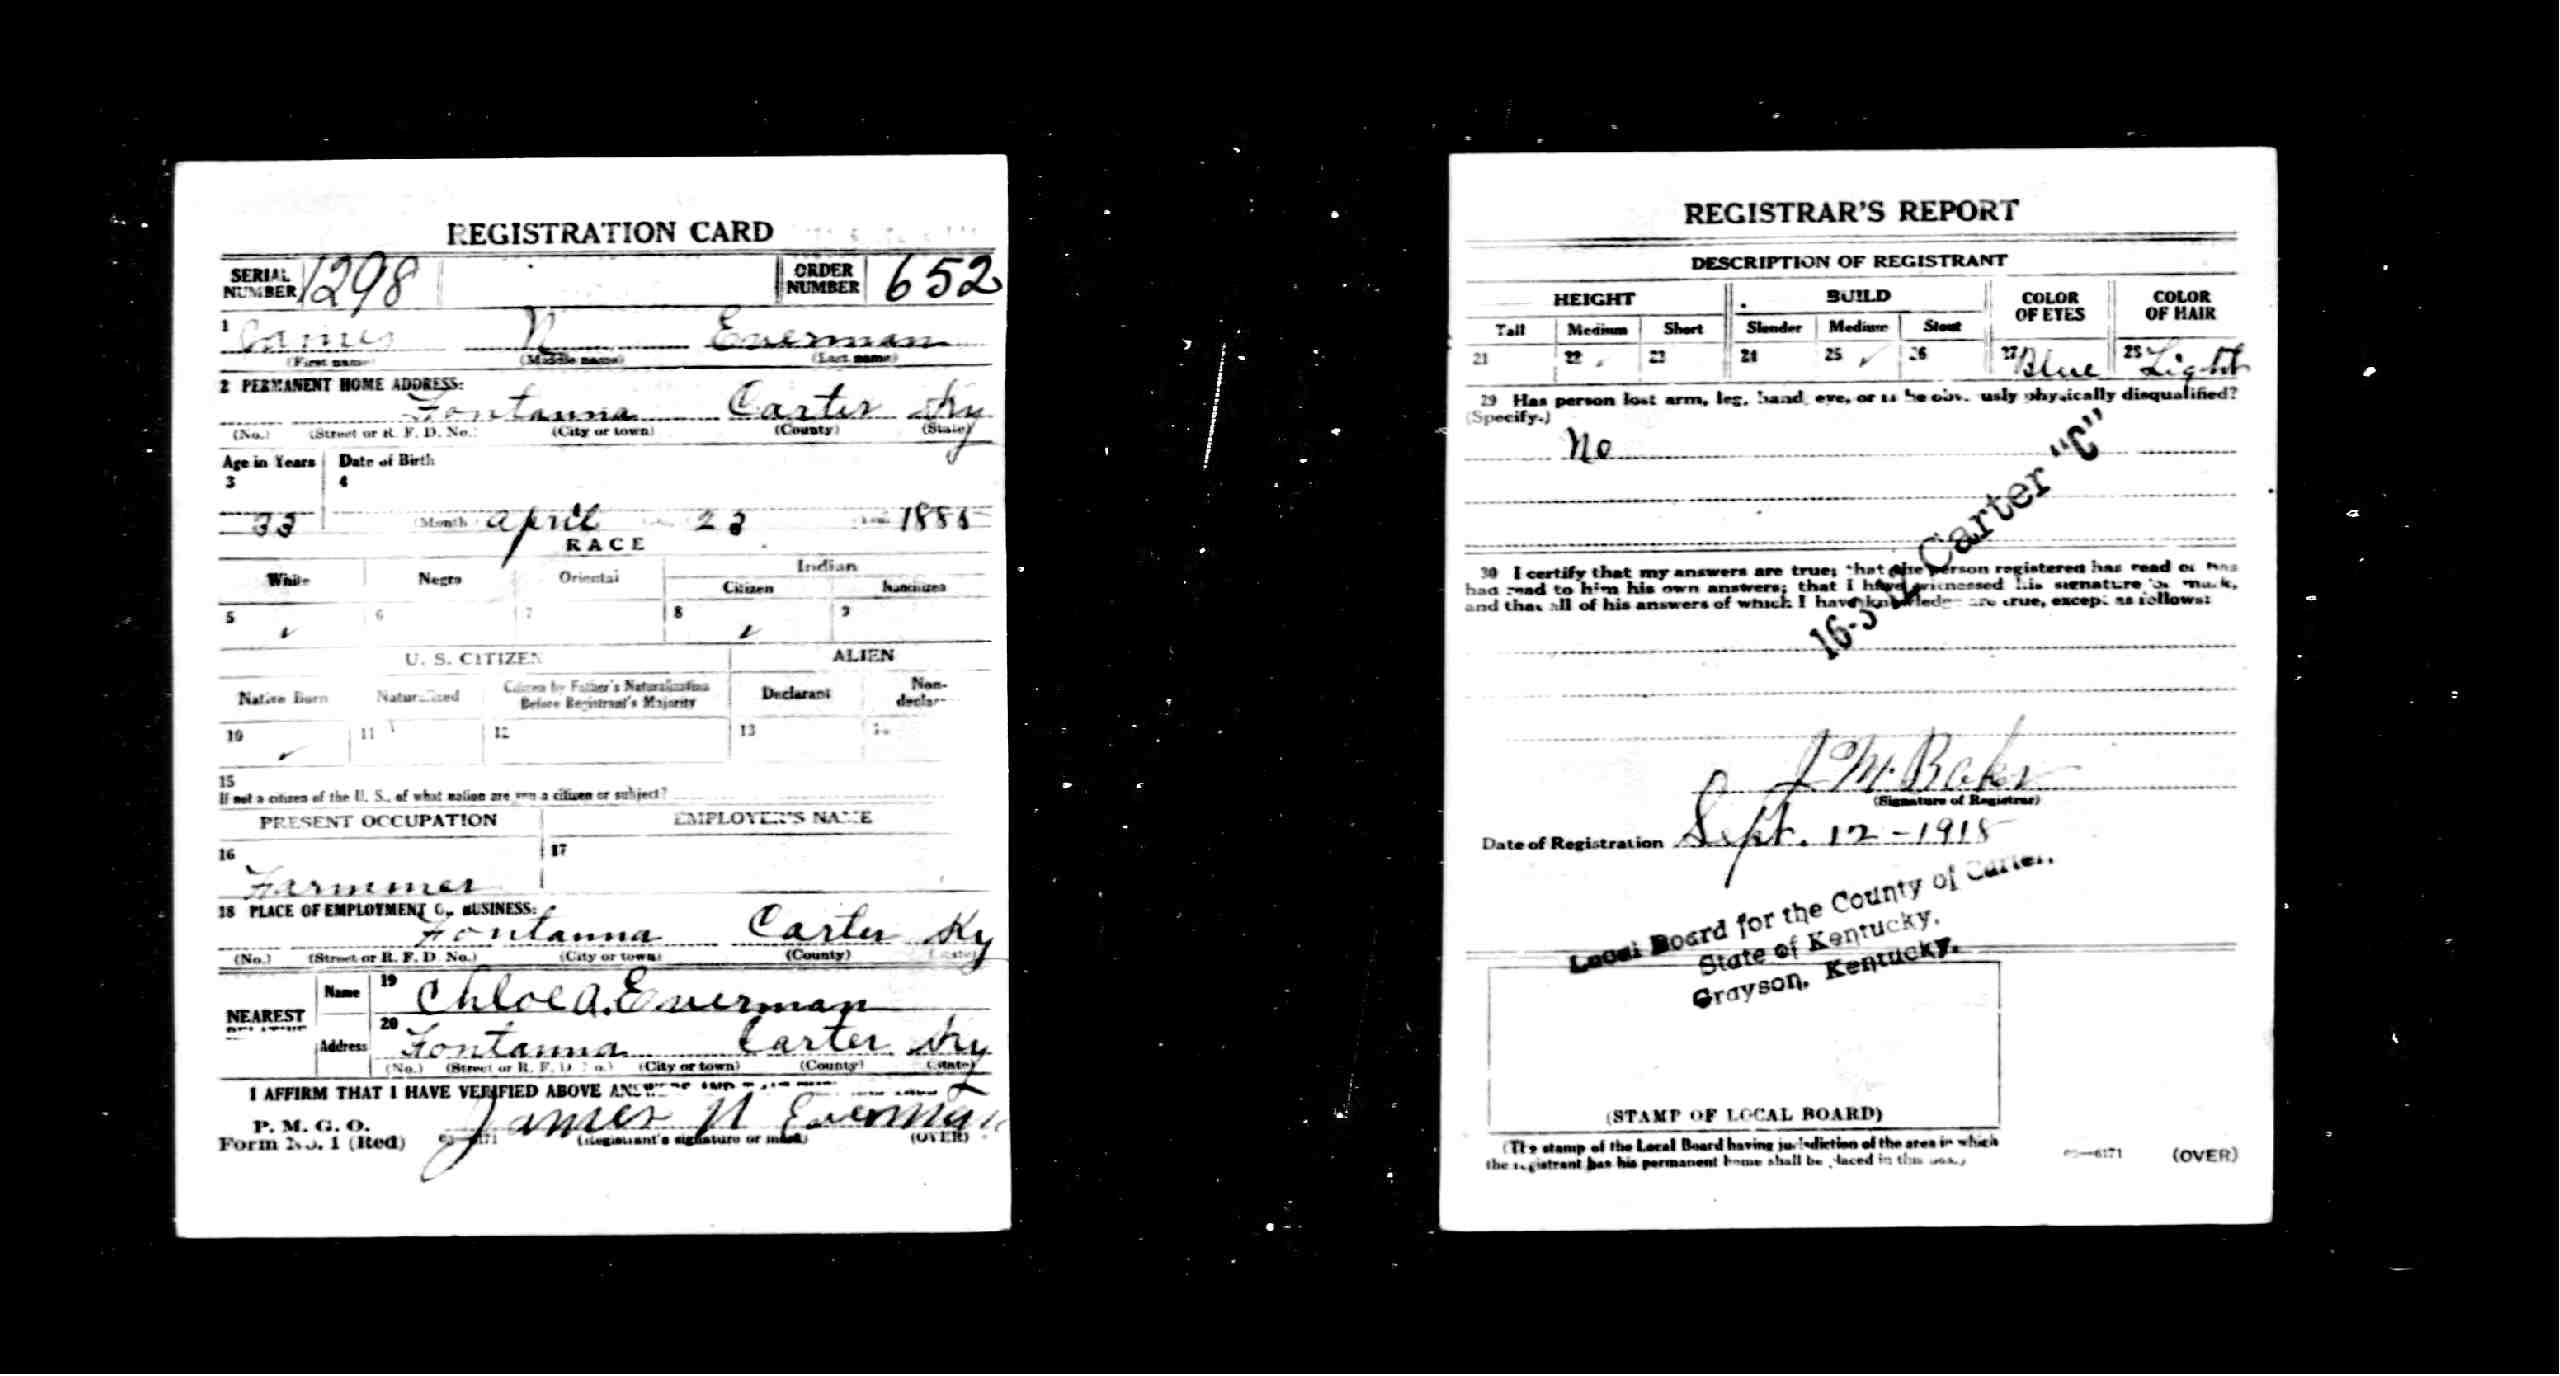 REGISTRATION CARD
SERIAL NUMBER 1298 ORDER NUMBER 652
1 James N Everman
(First name) (Middle name) (Last name)
2 PERMANENT HOME ADDRESS:
Fontanna Carter Ky
(No.) (Street or R. F. D. No.) (City or town) (County) (State)
Age in Years Date of Birth
3 4
33 (Month April 23 1885
RACE
White Negro Oriental Indian
Citizen
5 ✓ 6 7 8 ✓ 9
U. S. CITIZEN ALIEN
Native Born Naturalized Citizen by Father's Naturalization Before Registrant's Majority Declarant Non-
10 ✓ 11 12 13
15
If not a citizen of the U. S., of what nation are you a citizen or subject?
PRESENT OCCUPATION EMPLOYER'S NAME
16 17
Farmmer
18 PLACE OF EMPLOYMENT OR BUSINESS:
Fontanna Carter Ky
(No.) (Street or R. F. D. No.) (City or town) (County) (State)
NEAREST RELATIVE
Name 19 Chloe A. Everman
Address 20 Fontanna Carter Ky
(No.) (Street or R. F. D. No.) (City or town) (County) (State)
I AFFIRM THAT I HAVE VERIFIED ABOVE ANSWERS AND
P. M. G. O.
Form No. 1 (Red) James N Everman
(Registrant's signature or mark) (OVER)
REGISTRAR'S REPORT
DESCRIPTION OF REGISTRANT
HEIGHT BUILD COLOR OF EYES COLOR OF HAIR
Tall Medium Short Slender Medium Stout
21 22 ✓ 23 24 25 ✓ 26 27 Blue 28 Light
29 Has person lost arm, leg, hand, eye, or is he obviously physically disqualified?
(Specify.)
No
16-3- Carter "C"
30 I certify that my answers are true; that the person registered has read or has
had read to him his own answers; that I have witnessed his signature or mark,
and that all of his answers of which I have knowledge are true, except as follows:
J M. Baker
(Signature of Registrar)
Date of Registration Sept. 12 - 1918
Local Board for the County of Carter,
State of Kentucky,
Grayson, Kentucky.
(STAMP OF LOCAL BOARD)
(The stamp of the Local Board having jurisdiction of the area in which
the registrant has his permanent home shall be placed in this box.)
(OVER)